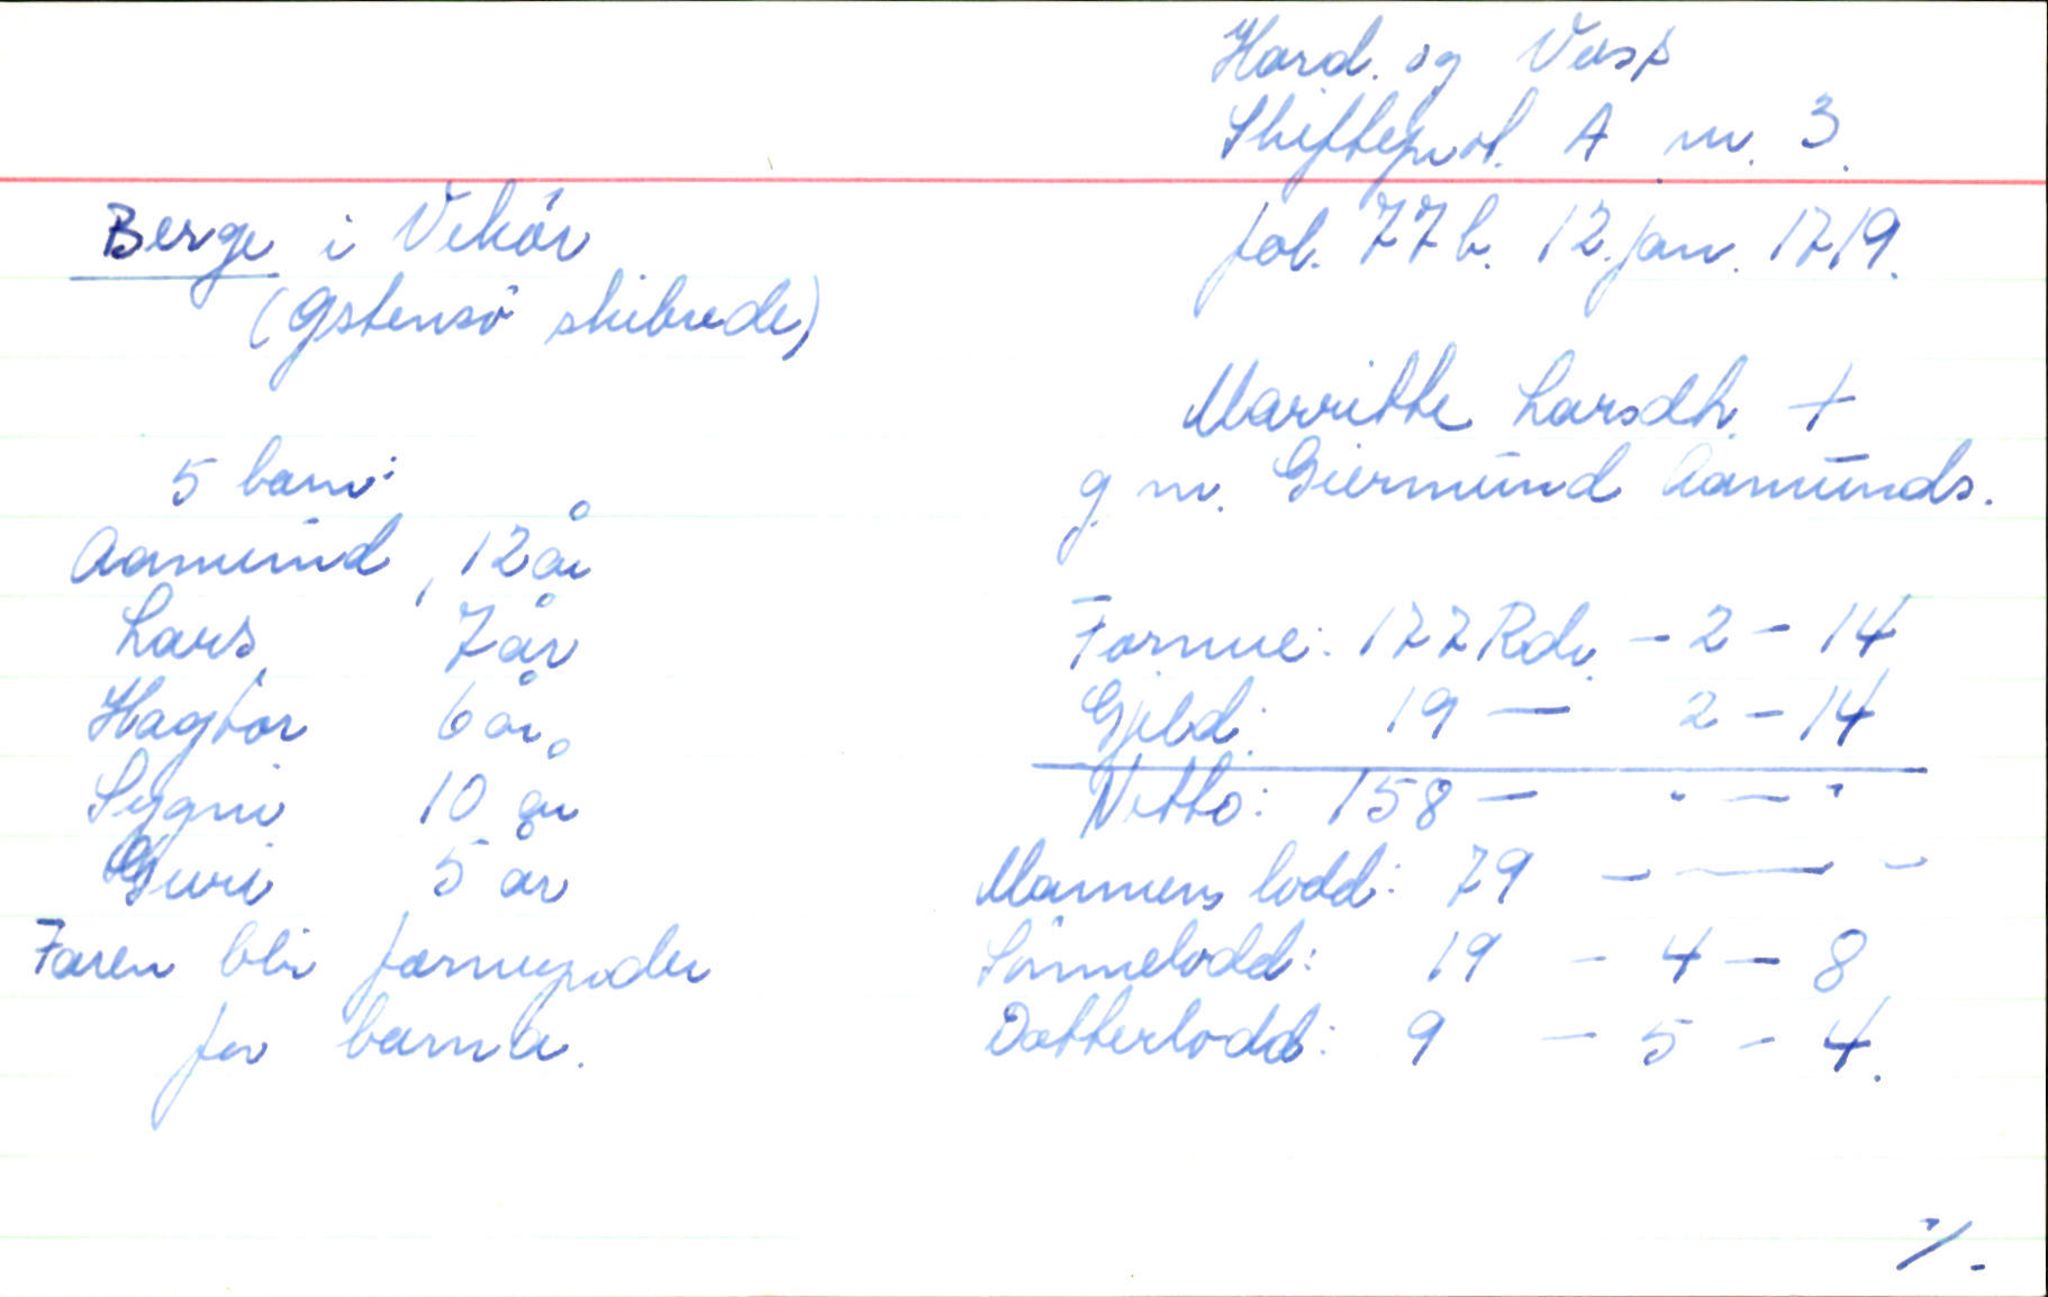 Hard. og Voss
Skifteprot. A nr. 3.
fol. 77b. 12. jan. 1719.
Berge i Vikör
(Østensö skibrede)
Marritte Larsdtr. +
g. m. Giermŭnd Aamŭnds.
5 barn:
Aamŭnd, 12 år
Lars 7 år
Hagtor 6 år
Sygni 10 år
Guri 5 år
Faren blir formynder
for barna.
Formue: 177 Rdr. - 2 - 14
Gjeld: 19 — 2 - 14
Netto: 158 — " — "
Mannens lodd: 79 - — -
Sönnelodd: 19 - 4 - 8
Datterlodd: 9 - 5 - 4.